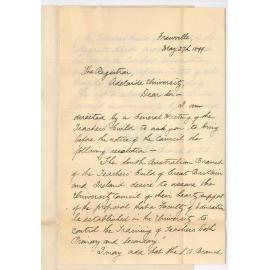 Frewville,
May 27th 1899.
The Registrar,
Adelaide University,
Dear Sir –
I am
directed by a General Meeting of the
Teachers' Guild to ask you to bring
before the notice of the Council the
following resolution –
"The South Australian Branch
of the Teachers Guild of Great Britain
and Ireland desire to assure the
University Council of their hearty support
of the proposal that a Faculty of Education
be established in the University to
control the Training of Teachers both
Primary and Secondary."
I may add that the S.A. Branch